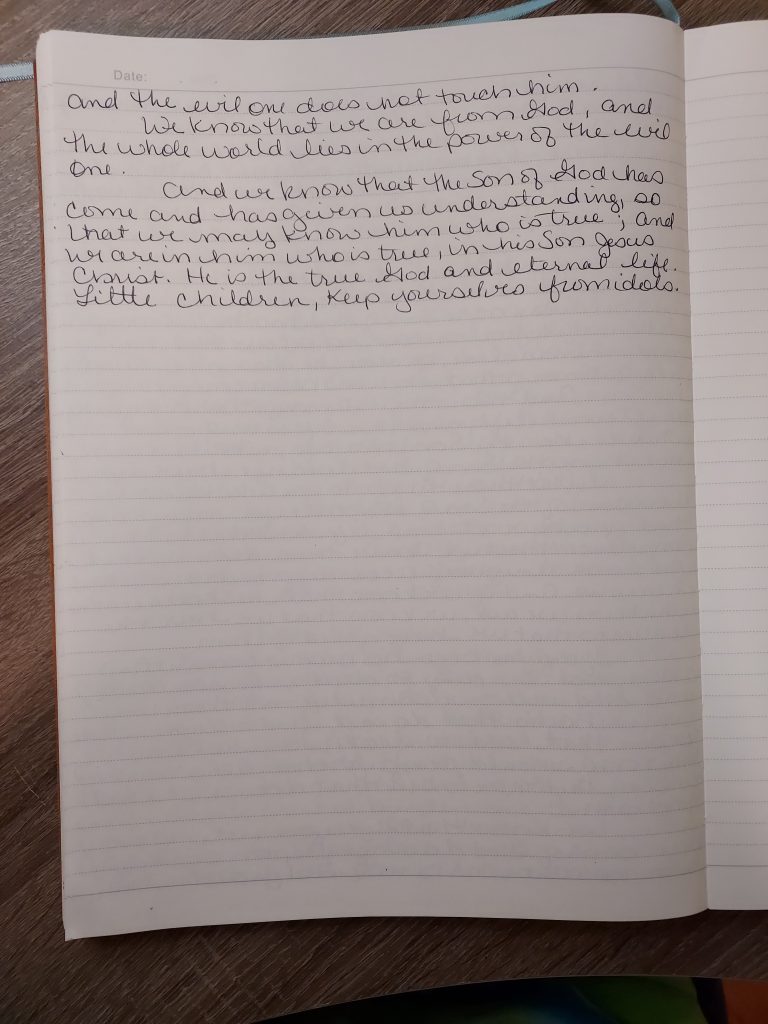 Date:
and the evil one does not touch him.
We know that we are from God, and
the whole world lies in the power of the evil
one.
And we know that the Son of God has
come and has given us understanding, so
that we may know him who is true; and
we are in him who is true, in his Son Jesus
Christ. He is the true God and eternal life.
Little children, keep yourselves from idols.